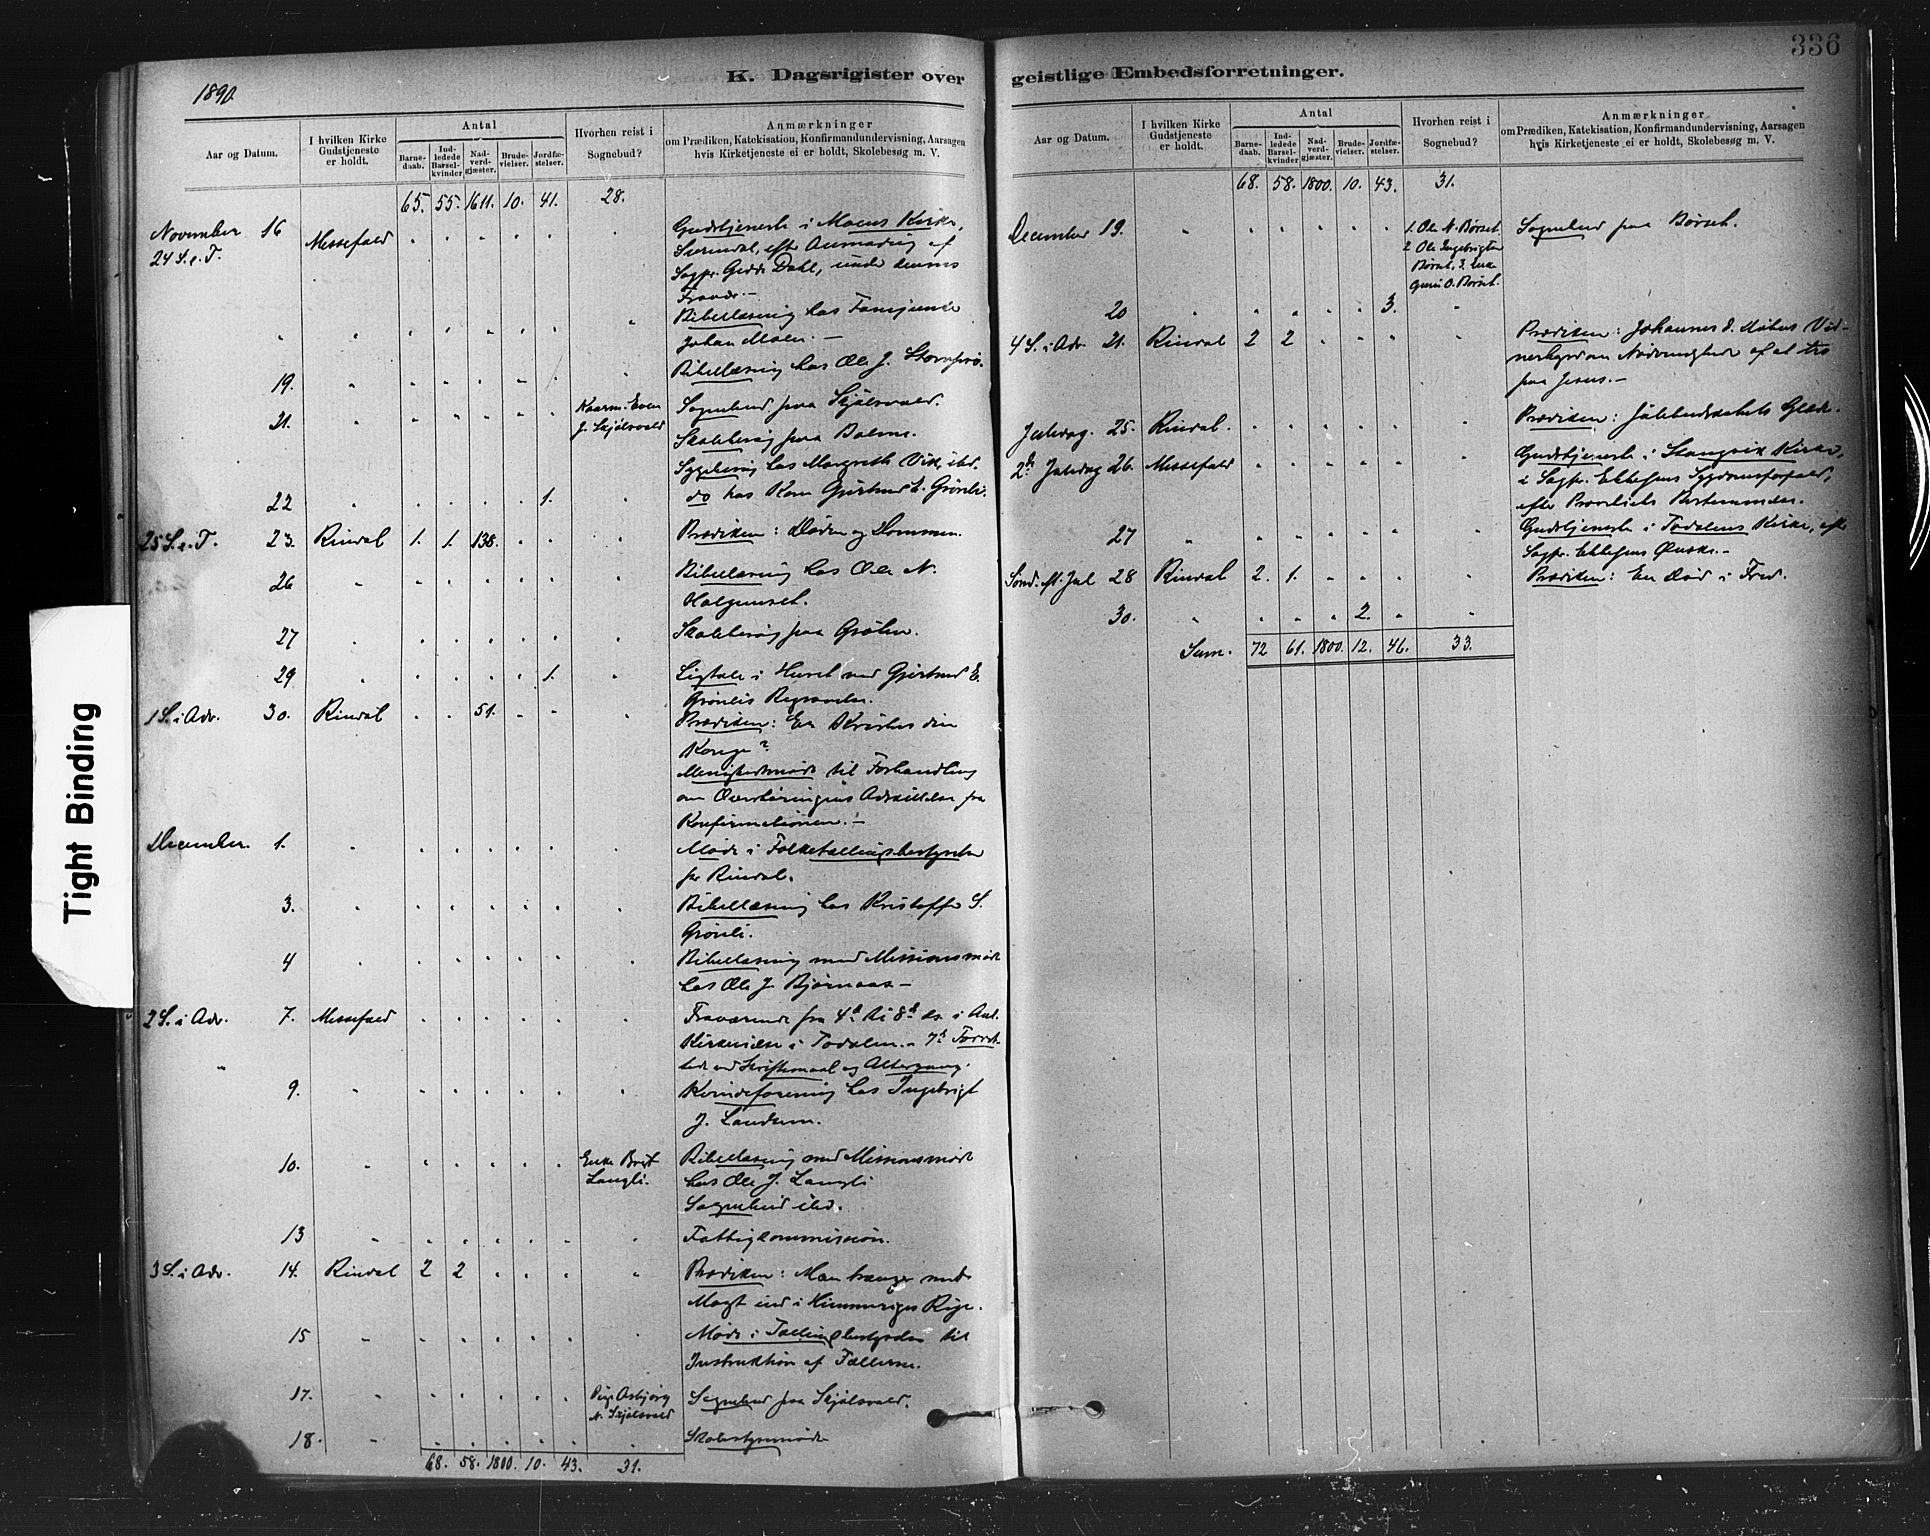 336
K. Dagsrigister over geistlige Embedsforretninger.
1890.
Tight Binding
Aar og Datum.
I hvilken Kirke Gudstjeneste er holdt.
Antal
Barnedaab.
Indledede Barselkvinder
Nadverdgjæster.
Brudevielser.
Jordfæstelser.
Hvorhen reist i Sognebud?
Anmærkninger
om Prædiken, Katekisation, Konfirmandundervisning, Aarsagen
hvis Kirketjeneste ei er holdt, Skolebesøg m. V.
65. 55. 1611. 10. 41. 28.
November 16 Messefald Gudstjeneste i Moens Kirke,
24 S. e. T. Surendal, efter Anmodning af
Sogpr. Gedde Dahl, under dennes
Bibellæsning hos
Johan Moen. –
19. Bibellæsning hos Ole J.
21. Kaarm. Even J. Skjølsvold Sognebud paa Skjølsvold.
Skolebesøg paa Bolme.
Sygebesøg hos Margreth Vik, ibd.
22 1. do hos Kone Gjertrud E. Grønli.
25 S. e. T. 23. Rindal 1. 1. 138. Prædiken: Døden og Dommen.
26 Bibellæsning hos Ole N.
Halgunset.
27 Skolebesøg paa Grølen.
29 1. Ligtale i Huset ved Gjertrud E.
Grønlis Begravelse.
1 S. i Adv. 30. Rindal 51. Prædiken: Er Kristus din
Konge?
Menighedsmøde til Forhandling
om Overhøringens Adskillelse fra
Konfirmationen. –
December. 1. Møde i Folketællingsbestyrelse
for Rindal.
3. Bibellæsning hos Kristoffer S.
Grønli.
4 Bibellæsning med Missionsmøde
hos Ole J. Bjørnaas –
2 S. i Adv. 7. Messefald Fraværende fra 4de til 8de ds. i Anl.
Kirkevielse i Todalen. – 7de Forret-
tede ved Skriftemaal og Altergang.
9. Kvindeforening hos Ingebrigt
J. Landsem.
10. Enke Brit Langli. Bibellæsning med Missionsmøde
hos Ole J. Langli
Sognebud ibd.
13 Fattigkommission.
3 S. i Adv. 14. Rindal 2 2 Prædiken: Man trænger med
Magt ind i Himmeriges Rige.
15 Møde i Tællingsbestyrelse til
Instruktion af Tællerne.
17. Pige Asbjørg N. Skjølsvold Sognebud paa Skjølsvold.
18. Skolestyremøde
68. 58. 1800. 10. 43. 31.
Aar og Datum.
I hvilken Kirke Gudstjeneste er holdt.
Antal
Barnedaab.
Indledede Barselkvinder
Nadverdgjæster.
Brudevielser.
Jordfæstelser.
Hvorhen reist i Sognebud?
Anmærkninger
om Prædiken, Katekisation, Konfirmandundervisning, Aarsagen
hvis Kirketjeneste ei er holdt, Skolebesøg m. V.
68. 58. 1800. 10. 43. 31.
December 19. 1. Ole N. Børset Sognebud paa Børset.
2 Ole Ingebrigtsen
Børset, 3. Enke
Guru O. Børset.
20 3.
4 S. i Adv. 21. Rindal 2 2 Prædiken: Johannes d. Døbers Vid-
nesbyrd om Nødvendighed af at tro
paa Jesus. –
Juledag. 25. Rindal. Prædiken: Julebudskabets Glæde.
2den Juledag 26. Messefald Gudstjeneste i Stangvik Kirke,
i Sogpr. Ebbesens Sygdomsforfald,
efter Provstiets Bestemmelse.
27 Gudstjeneste i Todalens Kirke, efter
Sogpr. Ebbesens Ønske. –
Sønd. ef. Jul 28 Rindal 2. 1. Prædiken: En Død i Fred.
30. 2.
Sum. 72 61. 1800. 12. 46. 33.